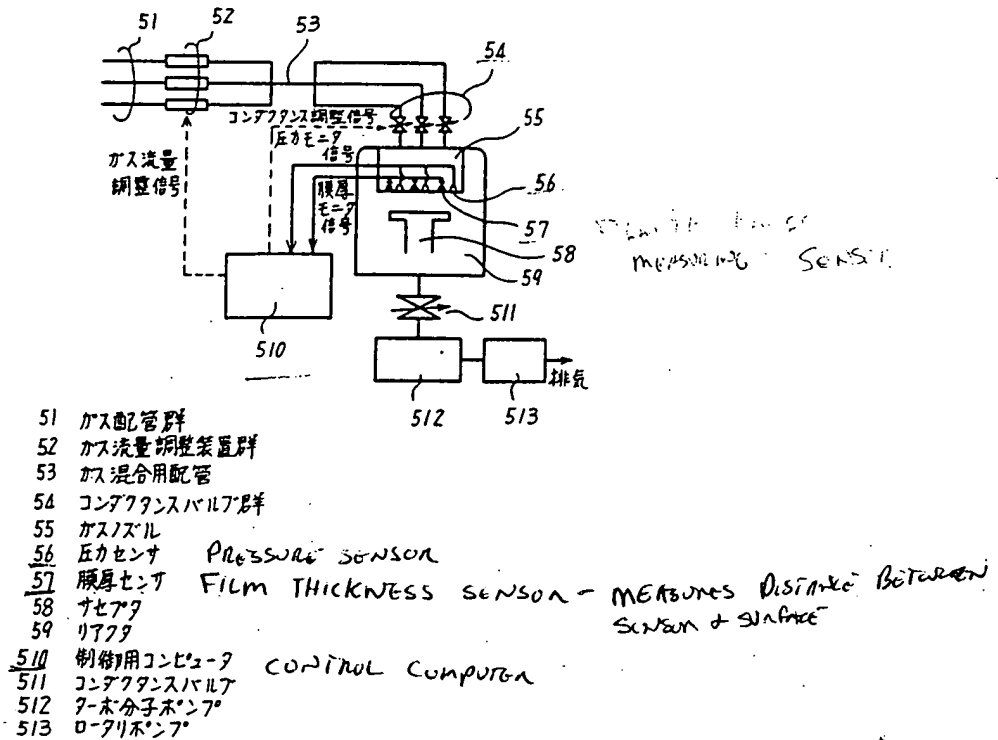 51
52
53
54
コンダクタンス調整信号
圧力モニタ
信号
55
ガス流量
調整信号
膜厚
モニタ
信号
56
57
58
MEASURING SENSOR
59
511
510
512
513
排気
51 ガス配管群
52 ガス流量調整装置群
53 ガス混合用配管
54 コンダクタンスバルブ群
55 ガスノズル
56 圧力センサ PRESSURE SENSOR
57 膜厚センサ FILM THICKNESS SENSOR - MEASURES DISTANCE BETWEEN
SENSOR & SURFACE
58 サセプタ
59 リアクタ
510 制御用コンピュータ CONTROL COMPUTER
511 コンダクタンスバルブ
512 ターボ分子ポンプ
513 ロータリポンプ